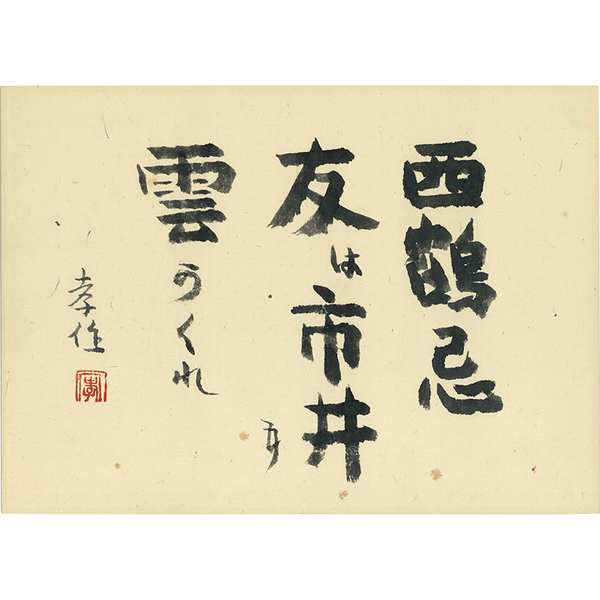 西鶴忌
友は市井に
雲かくれ
孝作
孝